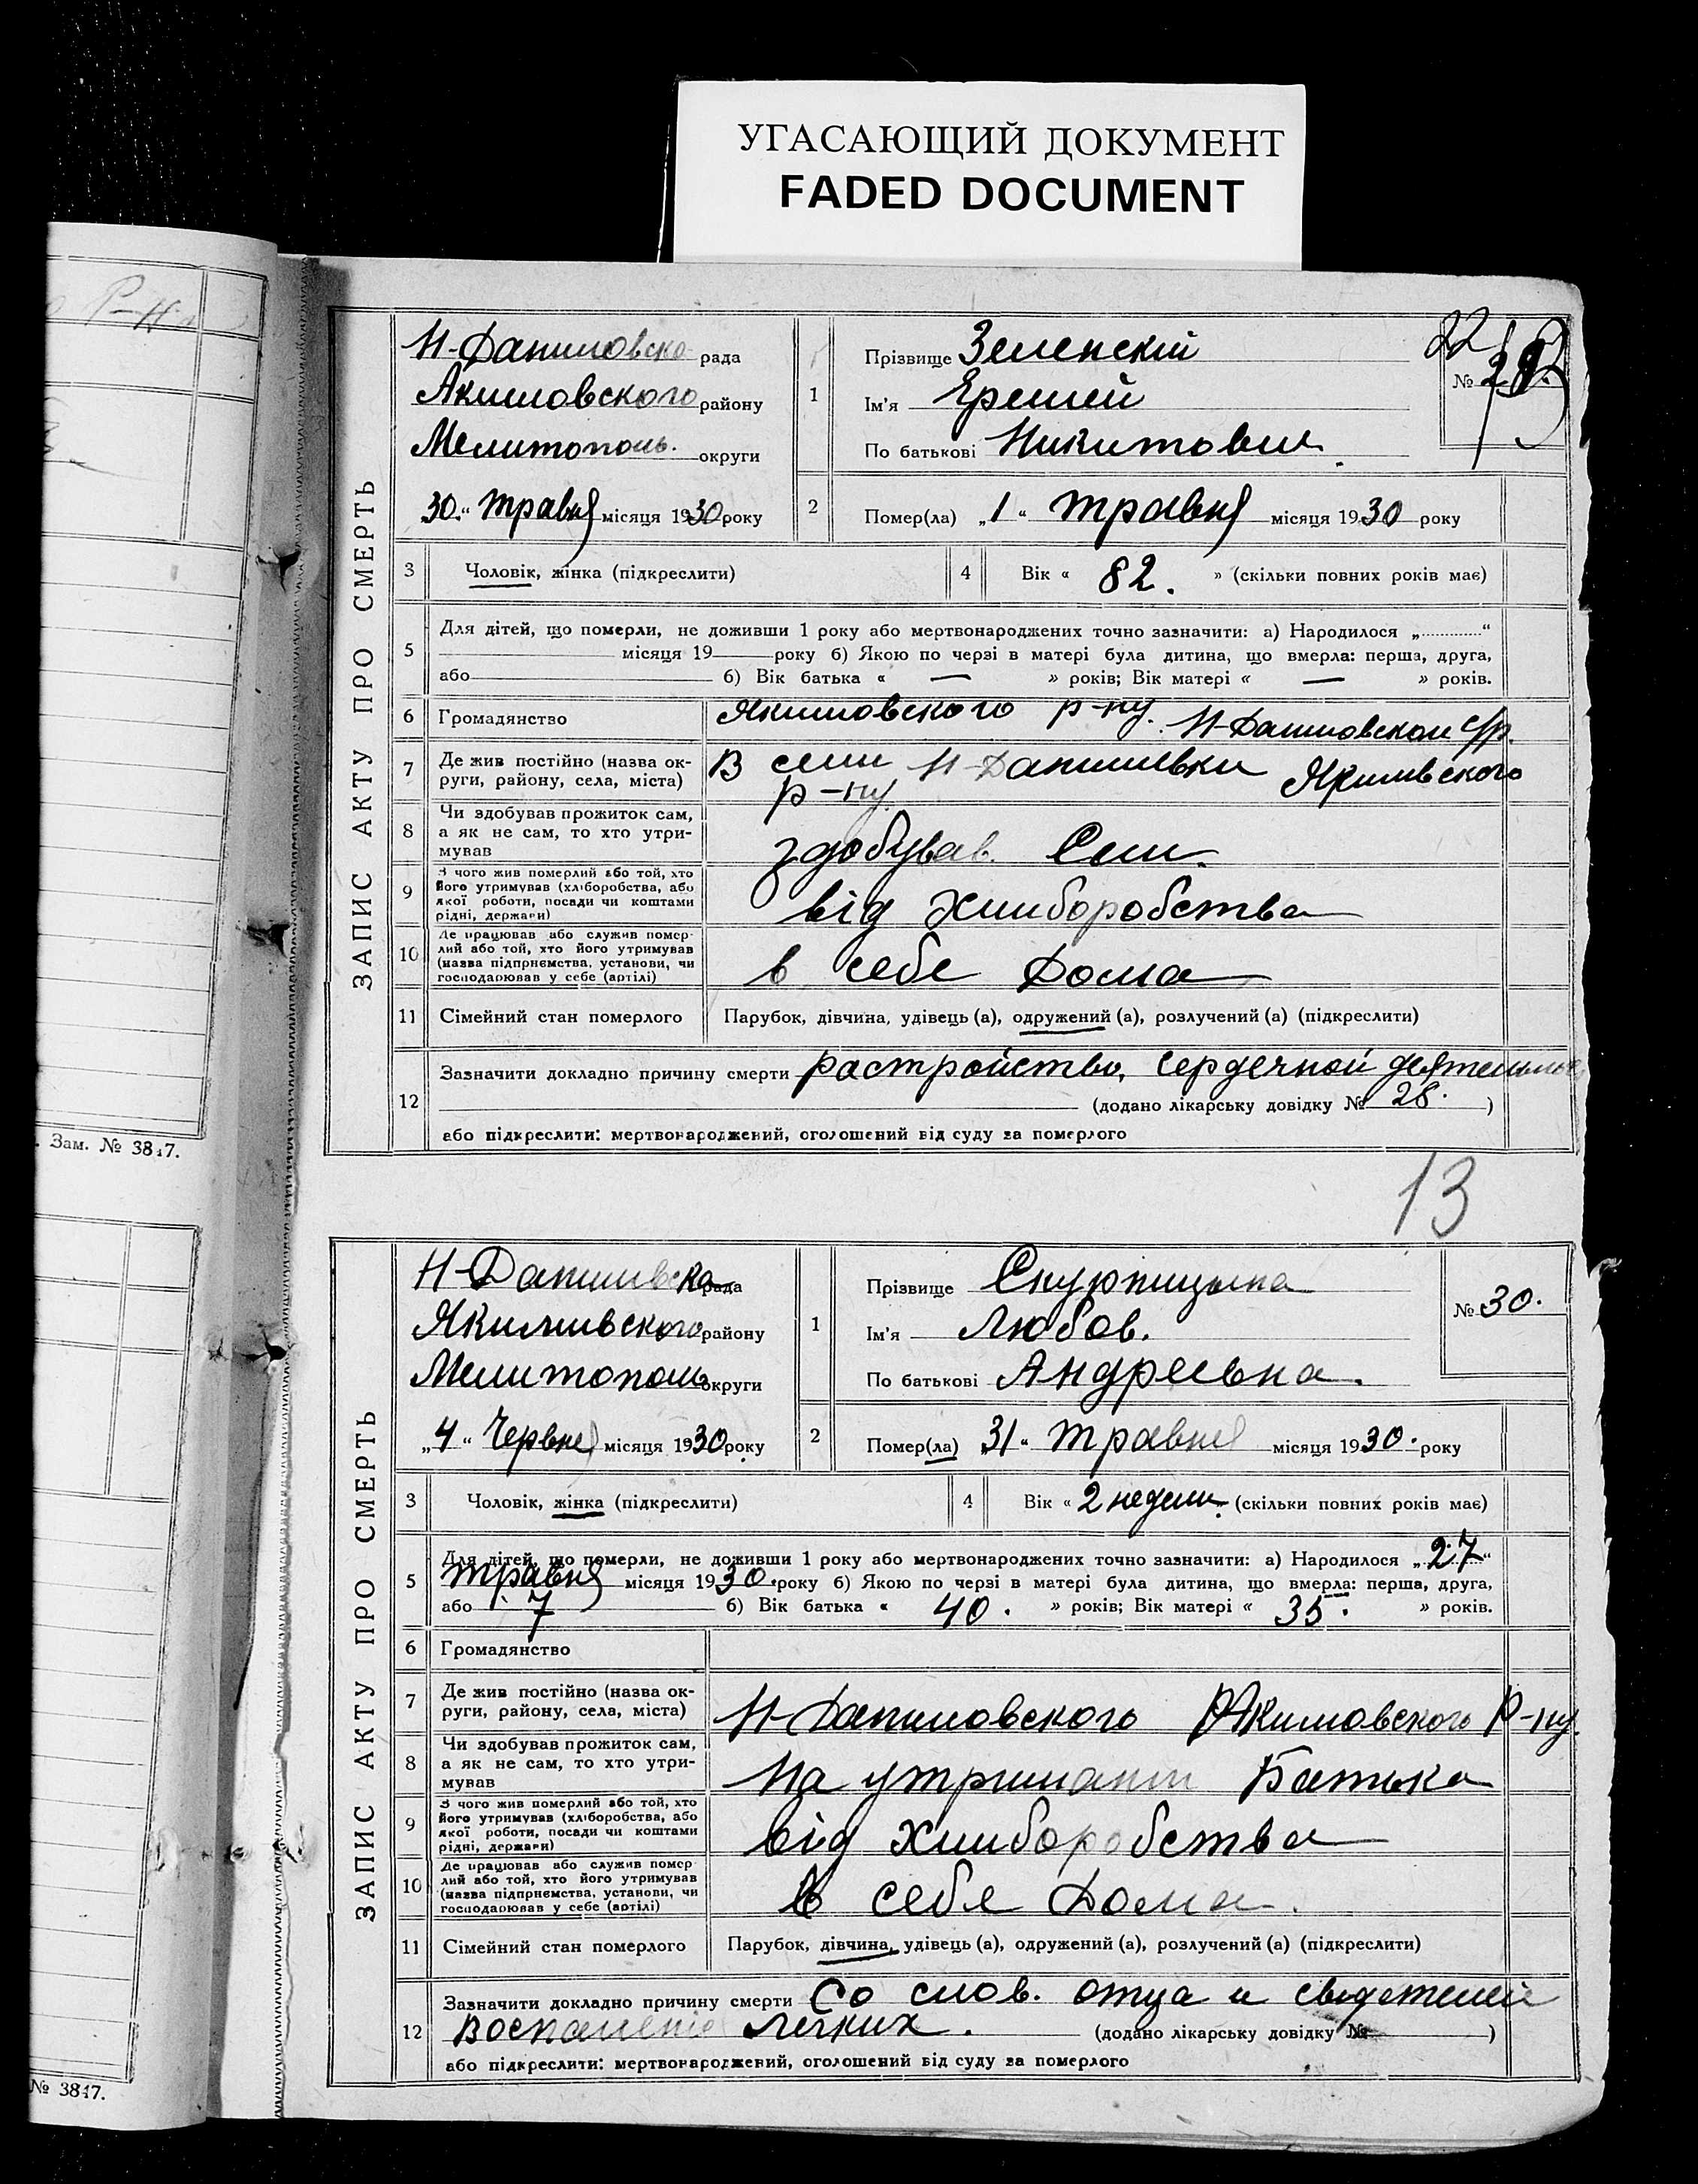 УГАСАЮЩИЙ ДОКУМЕНТ
FADED DOCUMENT
Р-Н
Зам. № 3847.
№ 3847.
ЗАПИС АКТУ ПРО СМЕРТЬ
Н-Даниловска рада
Акимовского району
Мелитополь. округи
„30.“ травня місяця 1930 року
1
Прізвище Зеленскій
Ім'я Еремей
По батькові Никитович.
22
№ 29.
2
Помер(ла) „1“ травня місяця 1930 року
3 Чоловік, жінка (підкреслити)
4 Вік « 82. » (скільки повних років має)
5 Для дітей, що померли, не доживши 1 року або мертвонароджених точно зазначити: а) Народилося „............“
місяця 19 року б) Якою по черзі в матері була дитина, що вмерла: перша, друга,
або б) Вік батька « — » років; Вік матері « — » років.
6 Громадянство Якимовского р-ну. Н-Даниловскои с/р.
7 Де жив постійно (назва округи, району, села, міста) В сели Н-Даниливки Якимивского
р-ну.
8 Чи здобував прожиток сам, а як не сам, то хто утримував
здобував. Сам.
9 З чого жив померлий або той, хто його утримував (хліборобства, або якої роботи, посади чи коштами рідні, держави)
від хлиборобства
10 Де працював або служив померлий або той, хто його утримував (назва підприємства, установи, чи господарював у себе (артілі)
в себе дома
11 Сімейний стан померлого Парубок, дівчина, удівець (а), одружений (а), розлучений (а) (підкреслити)
12 Зазначити докладно причину смерти растройство, сердечной
(додано лікарську довідку № 28. )
або підкреслити: мертвонароджений, оголошений від суду за померлого
13
ЗАПИС АКТУ ПРО СМЕРТЬ
Н-Даниливска рада
Якимивского району
Мелитополь округи
„4“ Червня місяця 1930 року
1
Прізвище Скурпицына
Ім'я Любов.
По батькові Андреевна.
№ 30.
2
Помер(ла) „31“ травня місяця 1930. року
3 Чоловік, жінка (підкреслити)
4 Вік « 2 недели. (скільки повних років має)
5 Для дітей, що померли, не доживши 1 року або мертвонароджених точно зазначити: а) Народилося „27“
травня місяця 1930. року б) Якою по черзі в матері була дитина, що вмерла: перша, друга,
або 7 б) Вік батька « 40. » років; Вік матері « 35. » років.
6 Громадянство
7 Де жив постійно (назва округи, району, села, міста)
Н-Даниловского Якимовского Р-ну.
8 Чи здобував прожиток сам, а як не сам, то хто утримував
На утримани Батька
9 З чого жив померлий або той, хто його утримував (хліборобства, або якої роботи, посади чи коштами рідні, держави)
від хлиборобства
10 Де працював або служив померлий або той, хто його утримував (назва підприємства, установи, чи господарював у себе (артілі)
в себе дома.
11 Сімейний стан померлого Парубок, дівчина, удівець (а), одружений (а), розлучений (а) (підкреслити)
12 Зазначити докладно причину смерти Со слов. отца и сведетелей
Воспаление легких. (додано лікарську довідку № )
або підкреслити: мертвонароджений, оголошений від суду за померлого